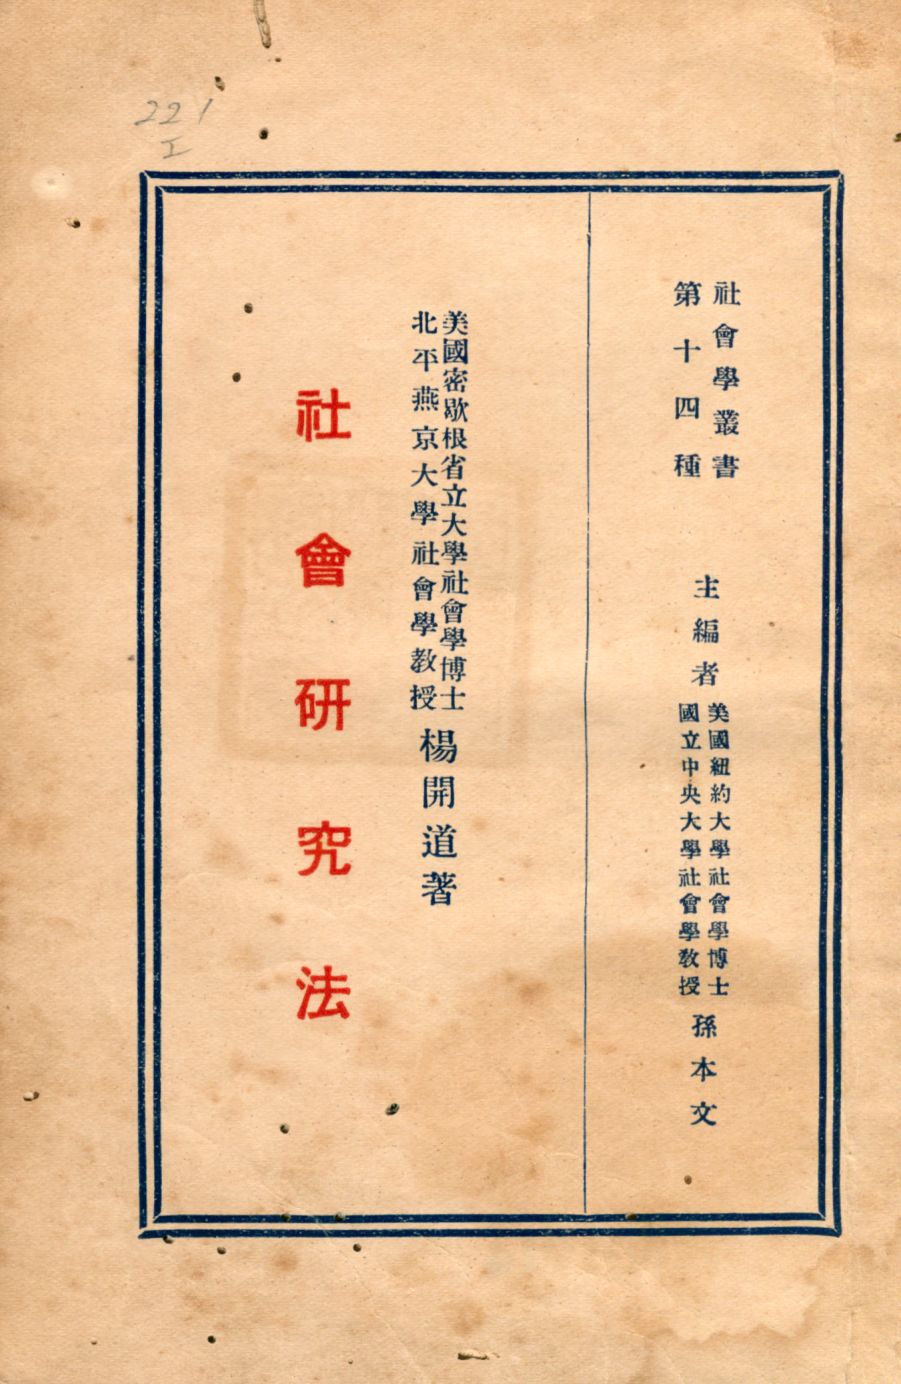 221
I
社會學叢書
第十四種
主編者
美國紐約大學社會學博士
國立中央大學社會學教授
孫本文
美國密歇根省立大學社會學博士
北平燕京大學社會學教授
楊開道著
社會研究法